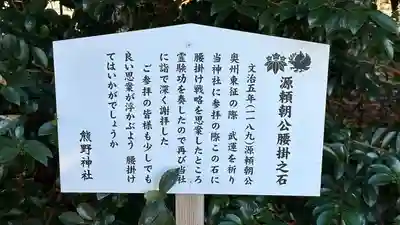 源頼朝公腰掛之石
文治五年(一一八九)源頼朝公
奥州東征の際 武運を祈り
当神社に参拝の際この石に
腰掛け戦略を思案したところ
霊験功を奏したので再び当社
に詣で深く謝拝した
ご参拝の皆様も少しでも
良い思案が浮かぶよう 腰掛け
てはいかがでしょうか
熊野神社